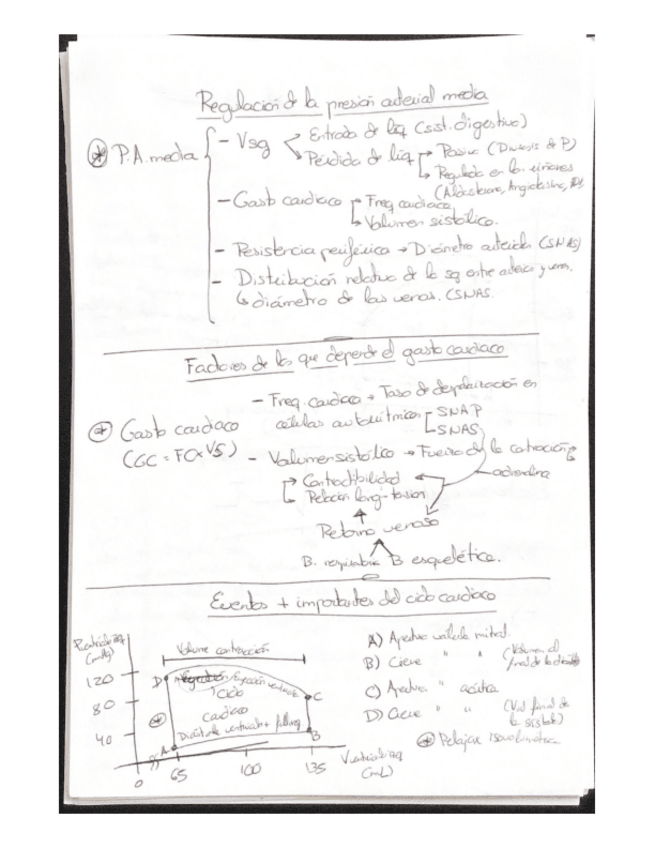 Regulación de la presión arterial media
* P.A. media
- Vsg
Entrada de liq (sist. digestivo)
Pérdida de liq
Pasiva (Diuresis de P)
Regulada en los riñones
(Aldosterona, Angiotensina,
- Gasto cardiaco
Freq cardiaca
Volumen sistólico.
- Resistencia periférica → Diámetro arteriolas (SNAS)
- Distribución relativa de la sg entre arterias y venas.
↳ diámetro de las venas. (SNAS.
Factores de los que depende el gasto cardiaco
* Gasto cardiaco
(GC = FC x VS)
- Freq. cardiaca → Tasa de despolarización en
células autorítmicas
SNAP
SNAS
- Volumen sistólico → Fuerza de la contracción
adrenalina
Contractibilidad
Relación long-tension
Retorno venoso
B. respiratoria B esquelética.
Eventos + importantes del ciclo cardiaco
(mmHg)
120
80
40
0
65
100
135
(mL)
Volume contracción
D
C
B
A
Eyección ventricular
Ciclo
cardiaco
A) Apertura válvula mitral.
B) Cierre " " (Volumen al
final de la diástole)
C) Apertura " aórtica
D) Cierre " " (Vol final de
la sístole)
* Relajac isovolumétrica